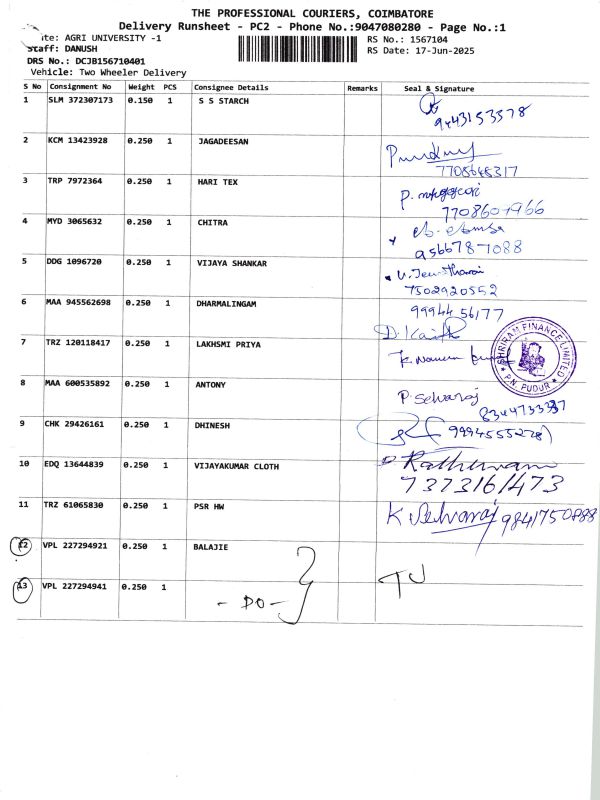 THE PROFESSIONAL COURIERS, COIMBATORE
Delivery Runsheet - PC2 - Phone No.:9047080280 - Page No.:1
ute: AGRI UNIVERSITY -1
RS No.: 1567104
Staff: DANUSH
RS Date: 17-Jun-2025
DRS No.: DCJB156710401
Vehicle: Two Wheeler Delivery
S No Consignment No Weight PCS Consignee Details Remarks Seal & Signature
1 SLM 372307173 0.150 1 S S STARCH
9443153578
2 KCM 13423928 0.250 1 JAGADEESAN
7708648317
3 TRP 7972364 0.250 1 HARI TEX
P.
7708607966
4 MYD 3065632 0.250 1 CHITRA
9566787088
5 DDG 1096720 0.250 1 VIJAYA SHANKAR
7502920552
6 MAA 945562698 0.250 1 DHARMALINGAM
9994456177
7 TRZ 120118417 0.250 1 LAKHSMI PRIYA
SHRIRAM FINANCE LIMITED
P.N. PUDUR
8 MAA 600535892 0.250 1 ANTONY
P. Selvaraj
9 CHK 29426161 0.250 1 DHINESH
10 EDQ 13644839 0.250 1 VIJAYAKUMAR CLOTH
7373161473
11 TRZ 61065830 0.250 1 PSR HW
K Selvaraj 9841750888
12 VPL 227294921 0.250 1 BALAJIE
13 VPL 227294941 0.250 1
- DO -
TJ